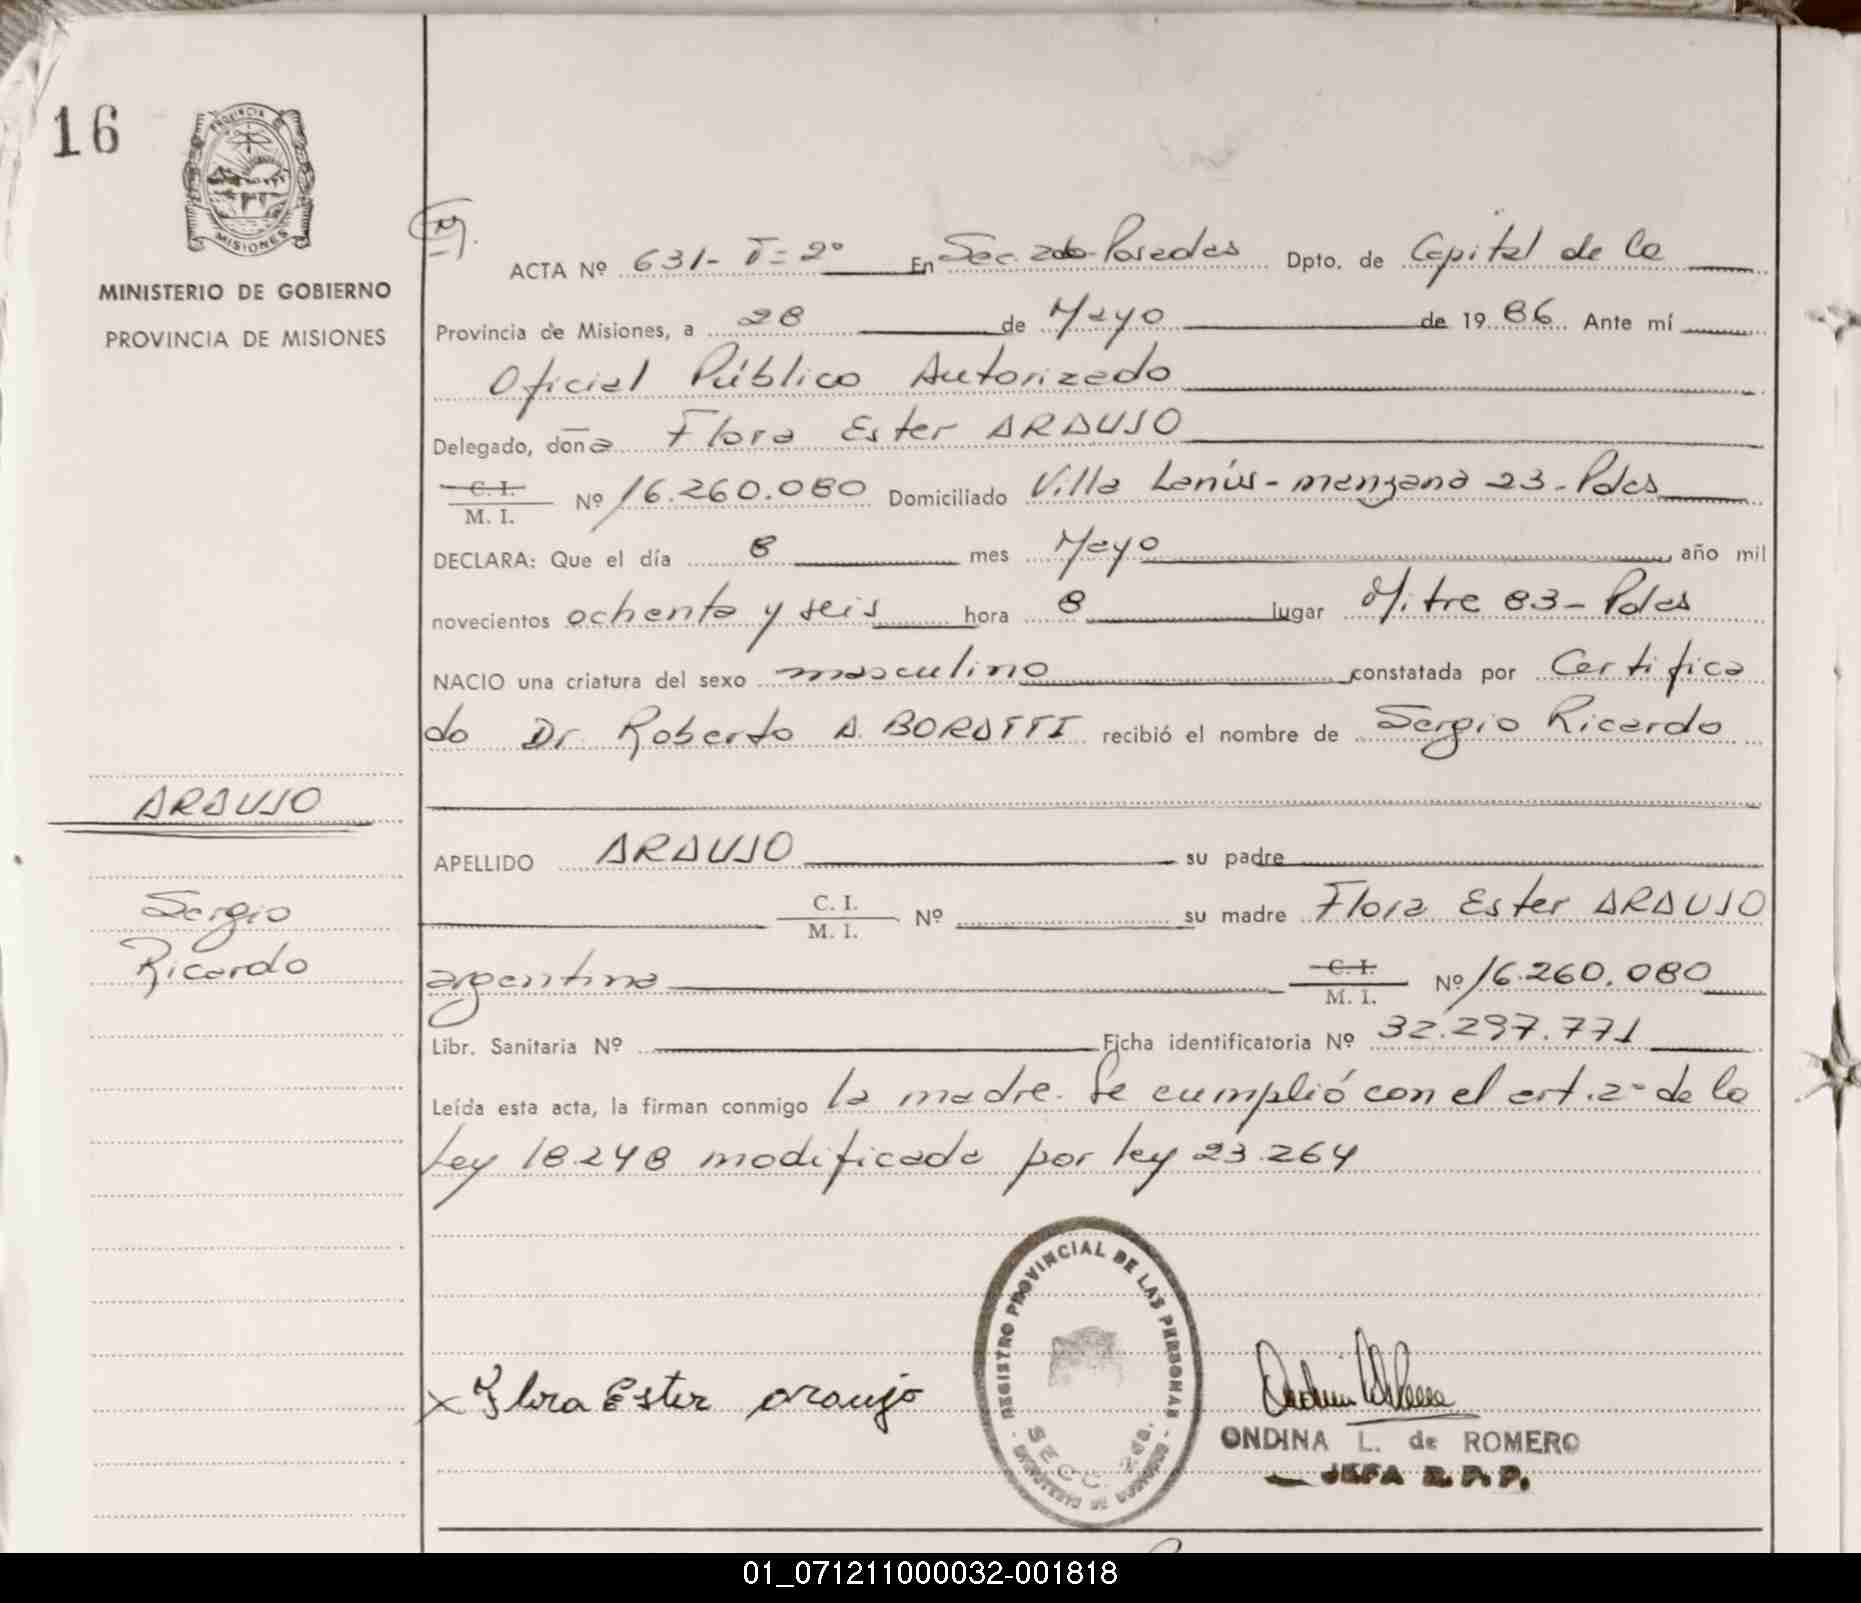 16
PROVINCIA DE
MISIONES
MINISTERIO DE GOBIERNO
PROVINCIA DE MISIONES
ACTA Nº 631- T=2º En Sec. 2da Posadas Dpto. de Capital de la
Provincia de Misiones, a 28 de Mayo de 1986 Ante mí
Oficial Público Autorizado
Delegado, dona Flora Ester ARAUJO
C. I.
M. I. Nº 16.260.080 Domiciliado Villa Lanús - manzana 23 - Pdas
DECLARA: Que el día 8 mes Mayo, año mil
novecientos ochenta y seis hora 8 lugar Mitre 83 - Pdas
NACIO una criatura del sexo masculino constatada por Certifica
do Dr. Roberto A. BORATTI recibió el nombre de Sergio Ricardo
ARAUJO
APELLIDO ARAUJO su padre
C. I.
M. I. Nº su madre Flora Ester ARAUJO
Sergio
Ricardo
argentina C. I.
M. I. Nº 16.260.080
Libr. Sanitaria Nº Ficha identificatoria Nº 32.297.771
Leída esta acta, la firman conmigo la madre. Se cumplió con el art. 2º de la
Ley 18.248 modificada por ley 23.264
REGISTRO PROVINCIAL DE LAS PERSONAS
SECC. 2da.
MINISTERIO DE GOBIERNO
x Flora Ester Araujo
ONDINA L. de ROMERO
JEFA R.P.P.
01_071211000032-001818